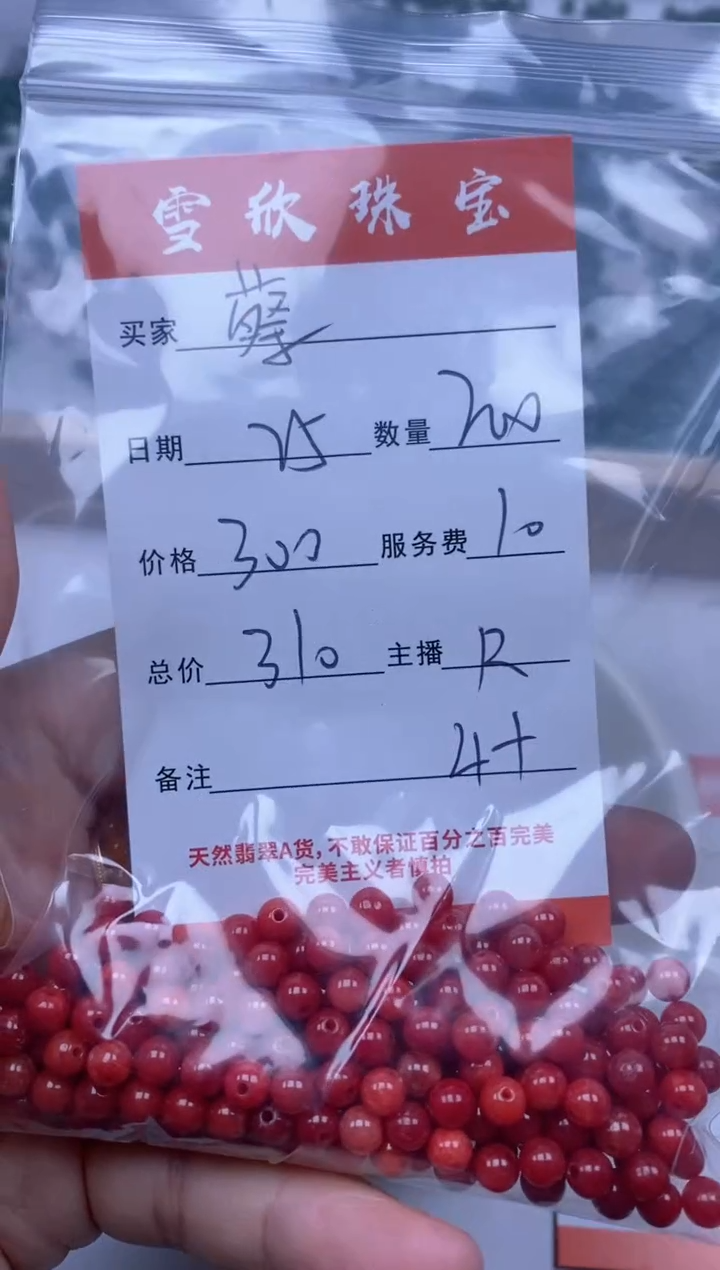 雪欣珠宝
买家 孽
日期 25 数量 200
价格 300 服务费 10
总价 310 主播 R
备注 4+
天然翡翠A货，不敢保证百分之百完美
完美主义者慎拍